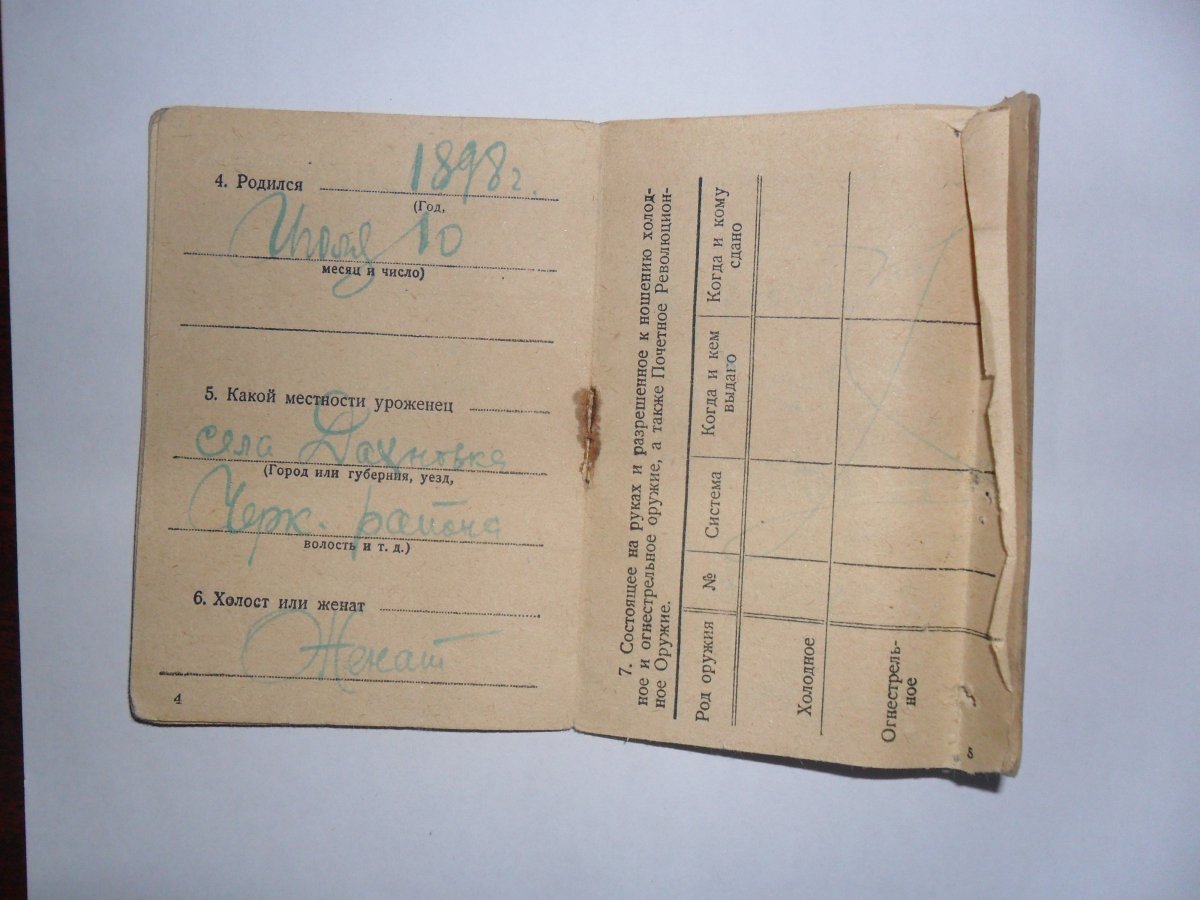 4. Родился 1898 г.
(Год,
Июля 10
месяц и число)
5. Какой местности уроженец
села Дахновка
(Город или губерния, уезд,
Черк. района
волость и т. д.)
6. Холост или женат
Женат
4
7. Состоящее на руках и разрешенное к ношению холод-
ное и огнестрельное оружие, а также Почетное Революцион-
ное Оружие.
Род оружия № Система Когда и кем выдано Когда и кому сдано
Холодное
Огнестрель-
ное
5